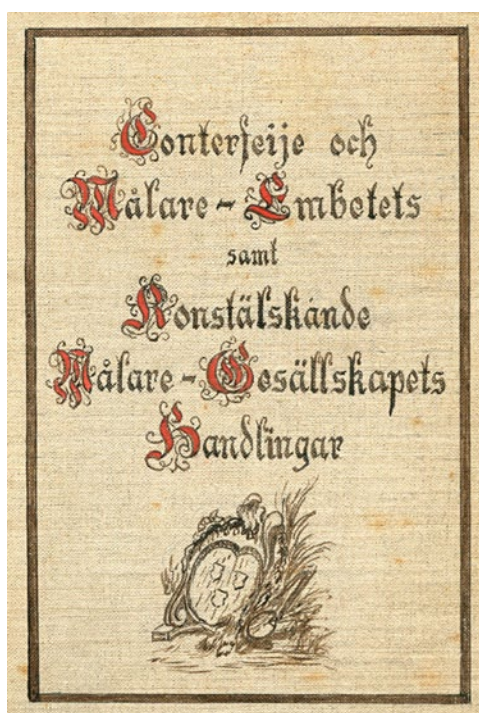 Conterfeije och
Målare-Embetets
samt
Konstälskande
Målare-Gesällskapets
Handlingar